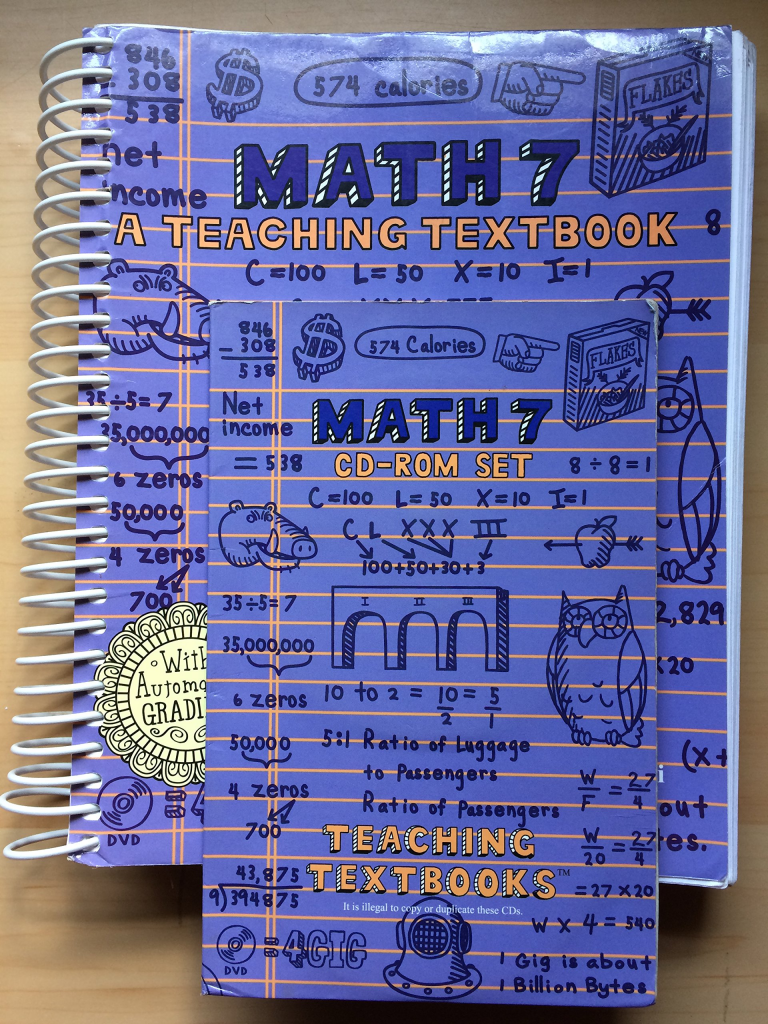 846
- 308
538
574 calories
FLAKES
net
income
MATH 7
A TEACHING TEXTBOOK
8
C=100 L=50 X=10 I=1
35÷5=7
35,000,000
6 zeros
50,000
4 zeros
700
With
GRADI
DVD
2,829
×20
(x+
out
es.
846
- 308
538
574 Calories
FLAKES
Net
income
= 538
MATH 7
CD-ROM SET
8÷8=1
C=100 L=50 X=10 I=1
C L XXX III
100+50+30+3
35÷5=7
I II III
35,000,000
6 zeros
10 to 2 = 10/2 = 5/1
50,000
5:1 Ratio of Luggage
to Passengers
4 zeros
Ratio of Passengers
W/F = 27/4
700
W/20 = 27/4
TEACHING
TEXTBOOKS™
= 27 × 20
43,875
9)394875
It is illegal to copy or duplicate these CDs.
W × 4 = 540
DVD
= 4GIG
1 Gig is about
1 Billion Bytes